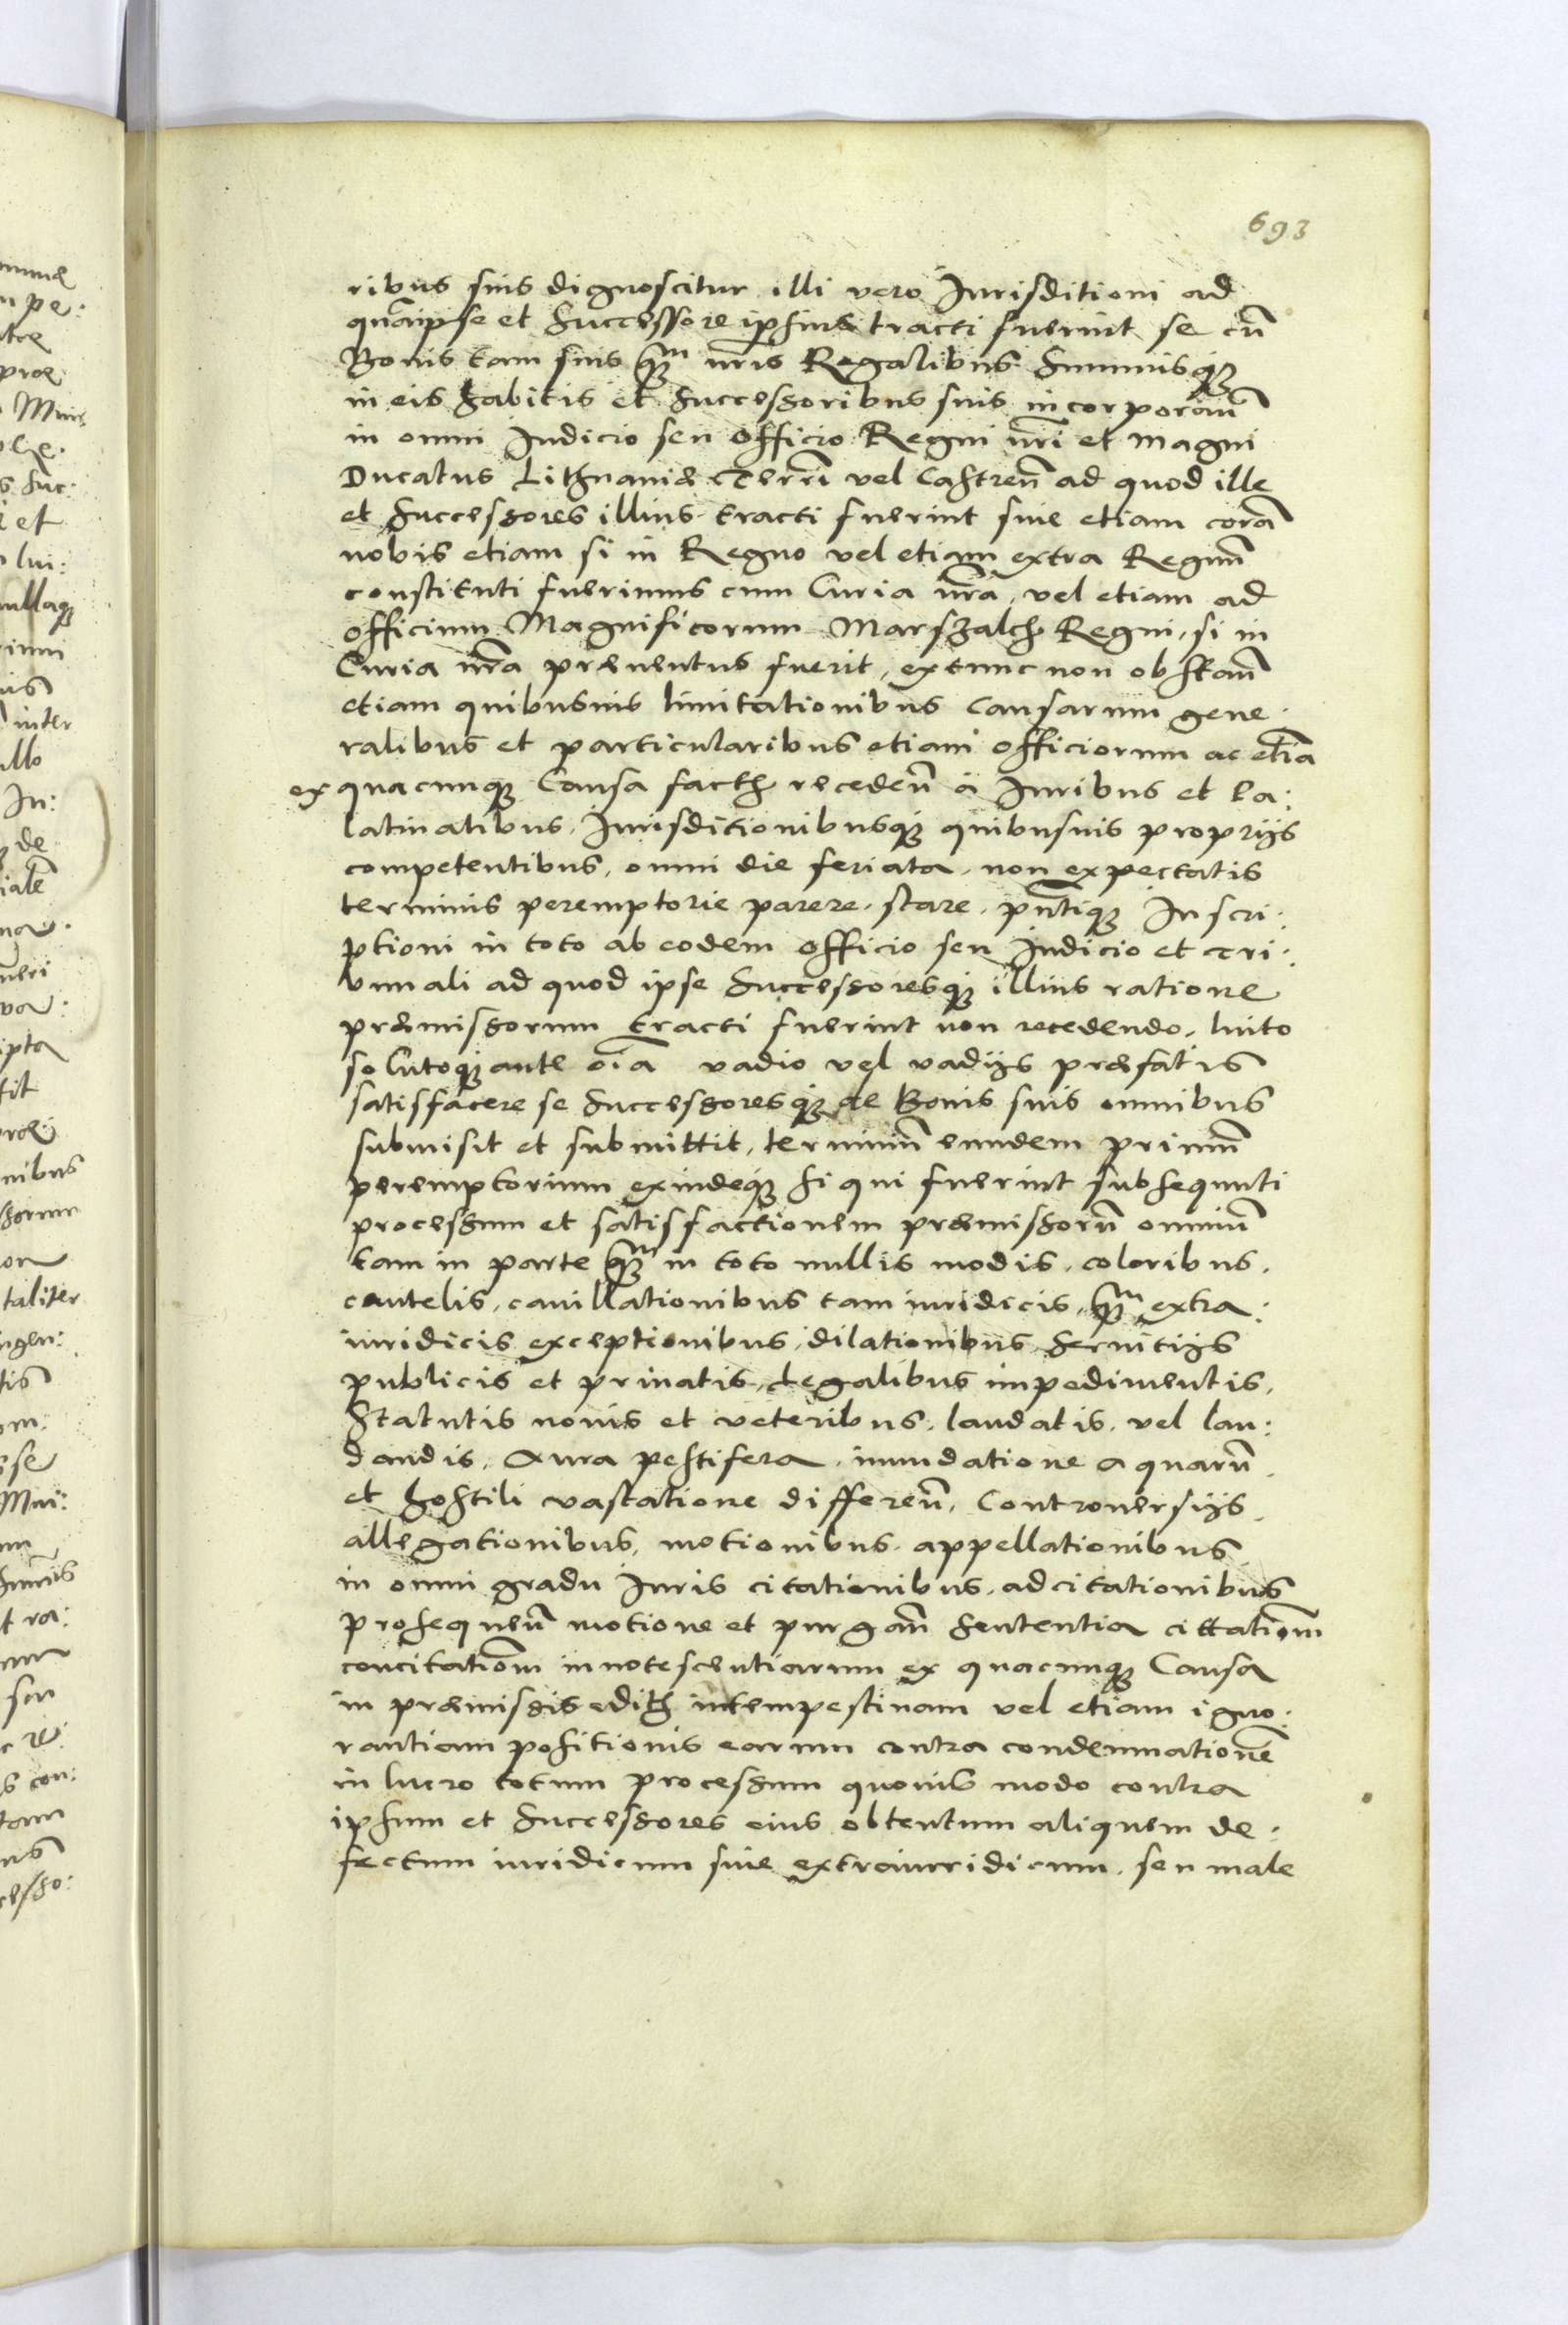 693
ribus suis dignoscitur illi vero Jurisditioni ad
quãipse et Successore ipsius tracti fuerint se cũ
Bonis tam suis qm̃ nr̃is Regalibus Summisq3
in eis habitis et Successoribus suis incorporañ
in omni Judicio seu Officio Regni nr̃i et Magni
Ducatus Lithuaniæ Terrĩ vel Castreñ ad quod ille
et Successores illius tracti fuerint siue etiam corã
nobis etiam si in Regno vel etiam extra Regnũ
constituti fuerimus cum Curia nr̃a, vel etiam ad
officium Magnificorum Marszalch Regni, si in
Curia nr̃a præuentus fuerit, extunc non obstañ
etiam quibusuis limitationibus Causarum gene:
ralibus et particularibus etiam officiorum ac etiã
ex quacunq3 Causa facth recedeñ à Juribus et Pa:
latinatibus, Jurisditionibusq3 quibusuis proprijs
competentibus, omni die feriata, non expectatis
terminis peremptorie parere, stare, pñtiq3 Inscri:
ptioni in toto ab eodem officio seu Judicio et Tri:
bunali ad quod ipse Successoresq3 illius ratione
præmissorum tracti fuerint non recedendo, luito
solutoq3 ante oĩa vadio vel vadijs præfatis
satisfacere se Successoresq3 ac Bonis suis omnibus
submisit et submittit, terminũ eundem primũ
peremptorium exindeq3 si qui fuerint subsequuti
processum et satisfactionem præmissorũ omniũ
tam in parte qm̃ in toto nullis modis, coloribus,
cautelis, cauillationibus tam iuridicis, qm̃ extra:
iuridicis exceptionibus, dilationibus, seruitijs
publicis et priuatis, legalibus impedimentis,
Statutis nouis et veteribus, laudatis, vel lau:
dandis, Aura pestifera, inundatione aquarũ
et hostili vastatione differeñ, Controuersijs,
allegationibus, motionibus, appellationibus
in omni gradu Juris citationibus, adcitationibus
prosequueñ motione et purgañ sententia cittatiom̃
concitatiom̃ innotescentiarum ex quacunq3 Causa
in præmissis edith intempestiuam vel etiam igno:
rantiam positionis earum contra condemnationẽ
in lucro totum processum quouis modo contra
ipsum et Successores eius obtentum aliquem de:
fectum iuridicum siue extraiurridicum, seu male